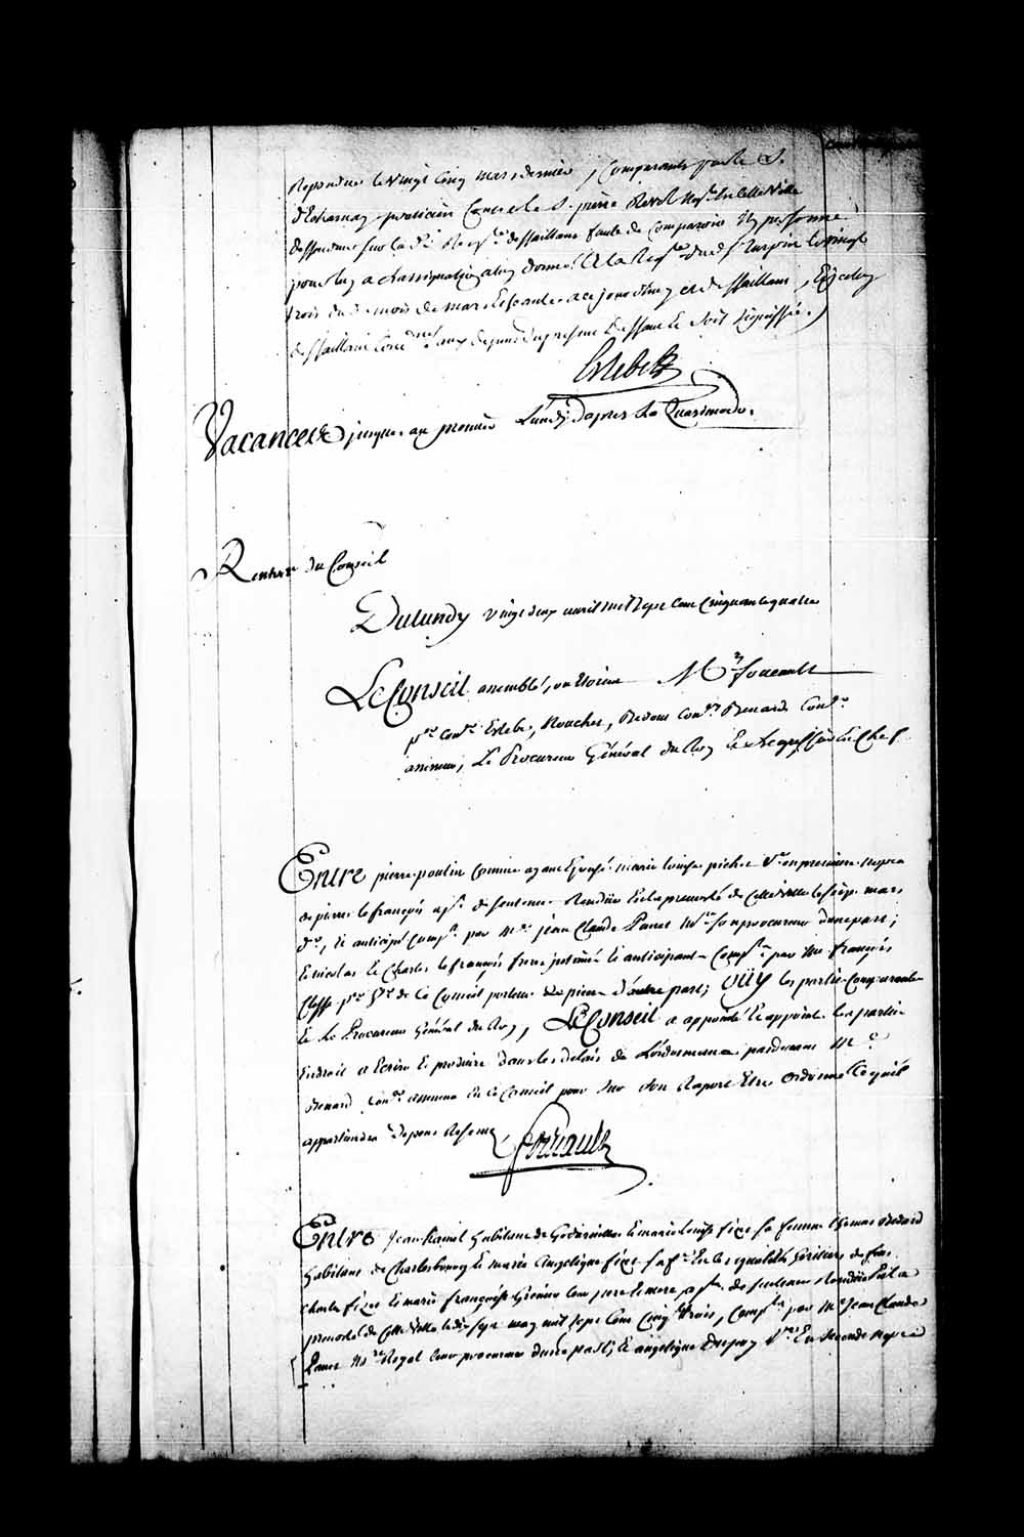 Repondue le vingt Cinq mars dernier, Comparante par le S.
D'Echarnay praticien Contre le S. pierre Revol Neg. en cette ville
deffendeur sur la d. Req. deffaillant faute de Comparoir ny personne
pour luy a l'assignation a luy donnée a la Req. du d. Turpin le vingt
trois du d. mois de mars Echeante a ce jourd'huy et de deffaillant,
deffaillant Cond. aux depens du present deffaut et soit signiffié.
Estebe
Vacances jusques au premier Lundy d'apres la Quasimodo.
Rentrée du Conseil
Du lundy vingt deux avril mil sept cent Cinquante quatre
Le Conseil assemblé, ou Etoient Mrs foucault
pr. Conr. Estebe, Nouchet, Bedout Conrs. Benard Conr.
assesseur, Le Procureur Général du Roy et le greffier en Chef
Entre pierre poulin Comme ayant Epousé marie louise pichet Ve. en premiere nopce
de pierre le françois apt. de sentence Rendüe En la prevosté de Cette ville le sept mars
dr., et anticipé Compt. par Me. jean Claude Panet Nre. son procureur d'une part;
Et nicolas et Charles le françois frere intimés et anticipant Compt. par Me françois
Clesse pr. hr. de Ce Conseil porteur de pieces d'autre part; oüy les parties Comparantes
Et Le Procureur Général du Roy, Le Conseil a appointé Et appointe les parties
En droit a Ecrire Et produire dans les delais de l'ordonnance pardevant Me.
Benard Conr. assesseur En Ce Conseil pour sur Son Raport Etre Ordonné Ce qu'il
appartiendra depens Reservés
foucault
Entre Jean hamel habitant de Godarville et marie louise fixe sa femme thomas Bedard
habitant de Charlesbourg Et marie Angelique fixe sa fe. Es les qualités heritiers de feu
Charles fixe et marie françoise Grenier leur pere et mere apt. de sentence Rendüe En la
prevosté de Cette ville le dix sept may mil sept Cent Cinqte. trois, Compt. par Me Jean Claude
Panet Nre. Royal leur procureur d'une part; Et angelique Dupuy Ve. En seconde nopce